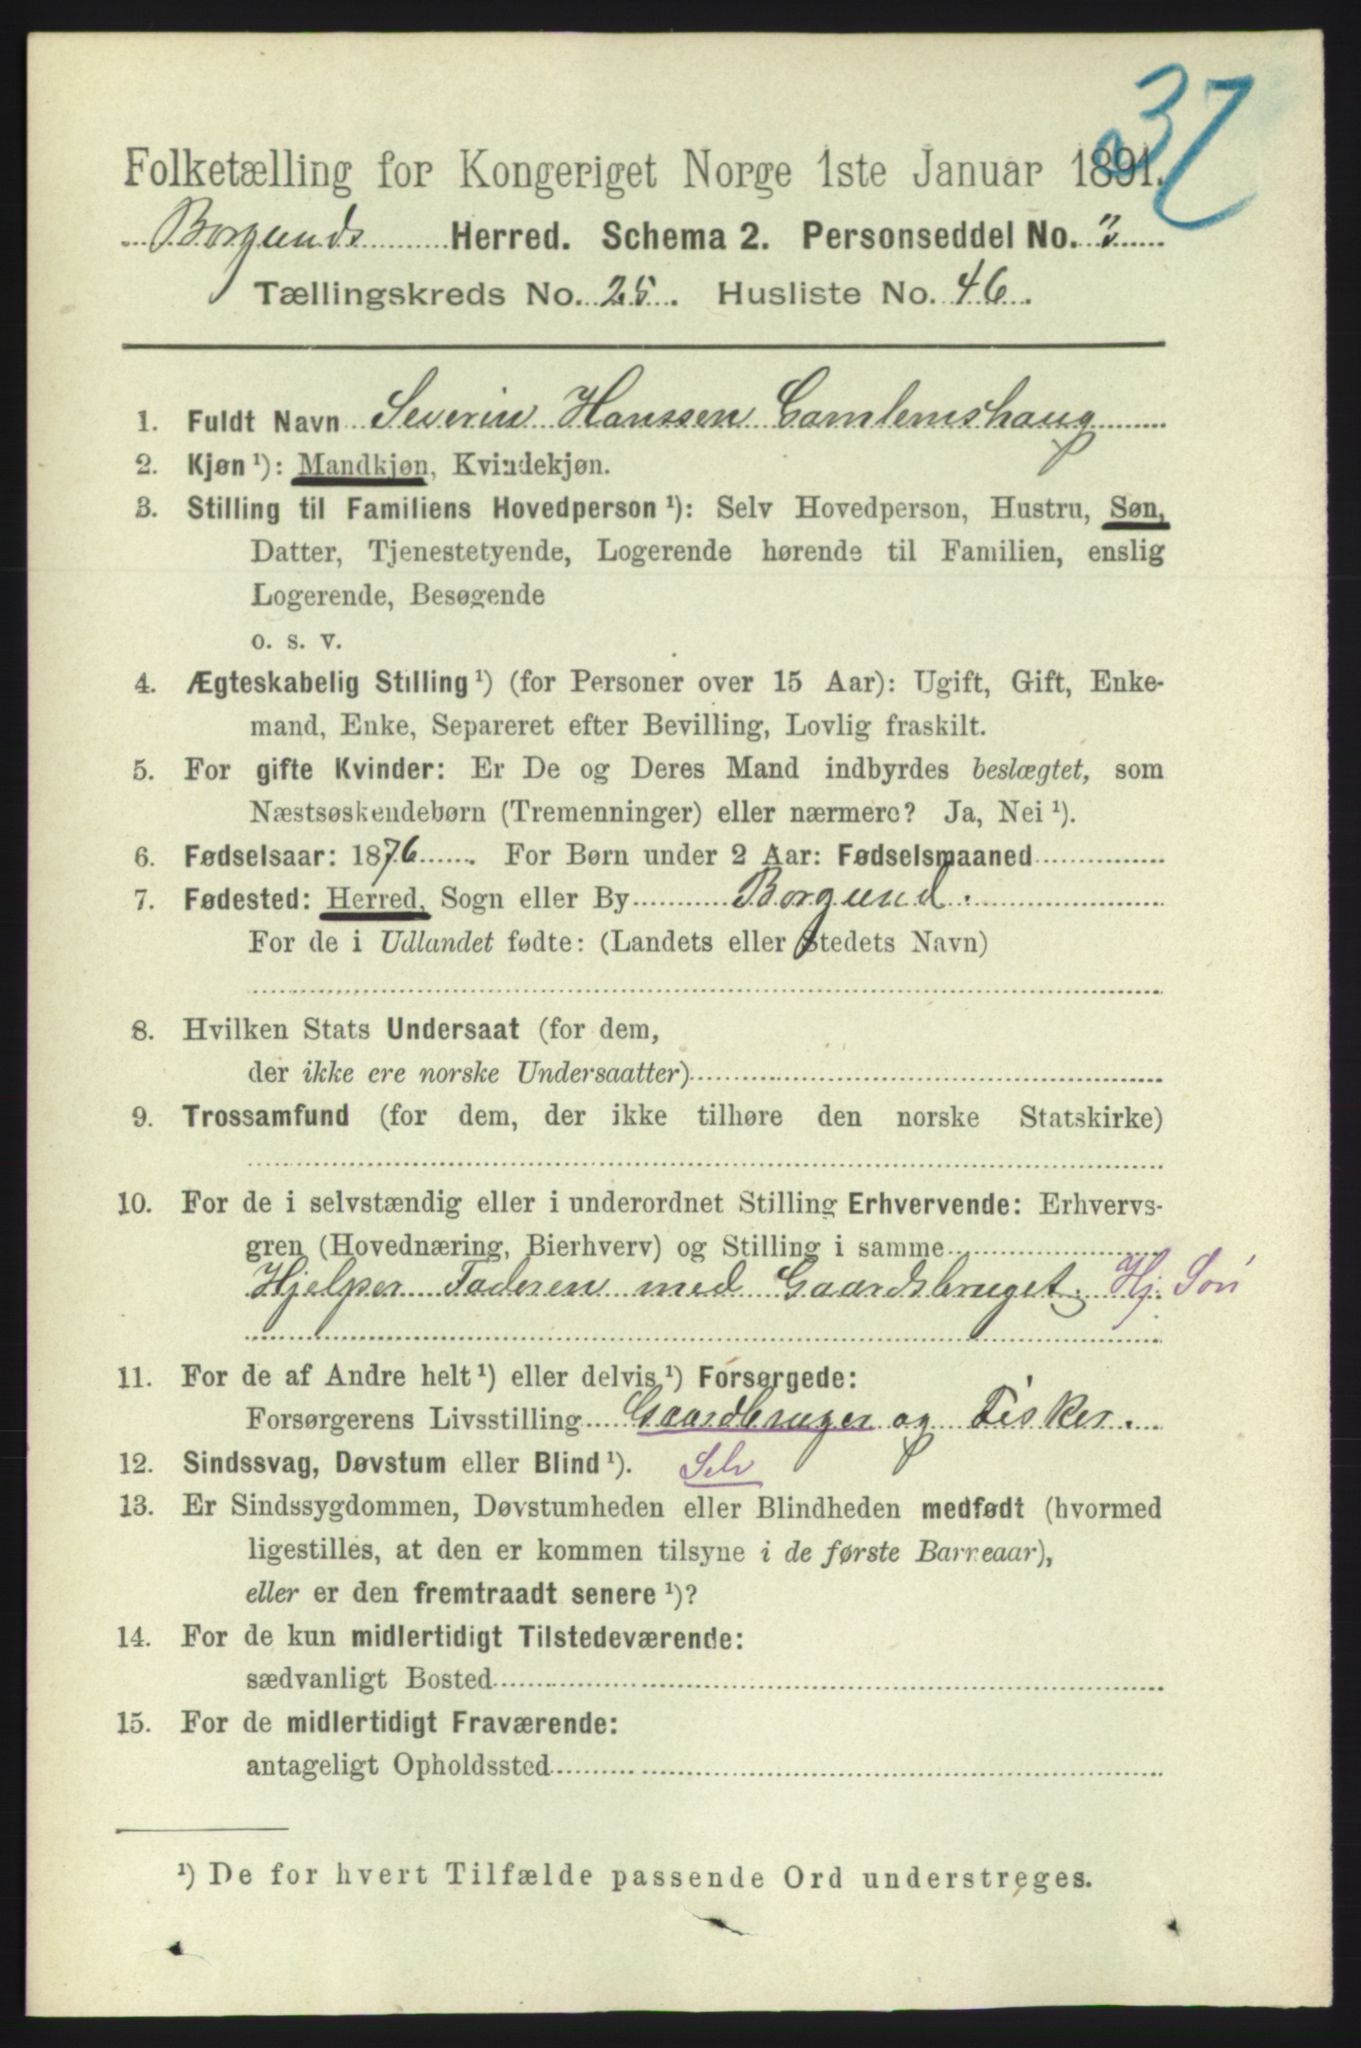 37
Folketælling for Kongeriget Norge 1ste Januar 1891.
Borgunds Herred. Schema 2. Personseddel No. 3
Tællingskreds No. 25. Husliste No. 46.
1. Fuldt Navn Severin Hanssen Gamlemshaug
2. Kjøn ¹): Mandkjøn, Kvindekjøn.
3. Stilling til Familiens Hovedperson ¹): Selv Hovedperson, Hustru, Søn,
Datter, Tjenestetyende, Logerende hørende til Familien, enslig
Logerende, Besøgende
o. s. v.
4. Ægteskabelig Stilling ¹) (for Personer over 15 Aar): Ugift, Gift, Enke-
mand, Enke, Separeret efter Bevilling, Lovlig fraskilt.
5. For gifte Kvinder: Er De og Deres Mand indbyrdes beslægtet, som
Næstsøskendebørn (Tremenninger) eller nærmere? Ja, Nei ¹).
6. Fødselsaar: 1876. For Børn under 2 Aar: Fødselsmaaned
7. Fødested: Herred, Sogn eller By Borgund.
For de i Udlandet fødte: (Landets eller Stedets Navn)
8. Hvilken Stats Undersaat (for dem,
der ikke ere norske Undersaatter)
9. Trossamfund (for dem, der ikke tilhøre den norske Statskirke)
10. For de i selvstændig eller i underordnet Stilling Erhvervende: Erhvervs-
gren (Hovednæring, Bierhverv) og Stilling i samme
Hjelper Faderen med Gaardsbruget. Hj. Søn
11. For de af Andre helt ¹) eller delvis ¹) Forsørgede:
Forsørgerens Livsstilling Gaardbruger og Fisker.
12. Sindssvag, Døvstum eller Blind ¹). Selv
13. Er Sindssygdommen, Døvstumheden eller Blindheden medfødt (hvormed
ligestilles, at den er kommen tilsyne i de første Barneaar),
eller er den fremtraadt senere ¹)?
14. For de kun midlertidigt Tilstedeværende:
sædvanligt Bosted
15. For de midlertidigt Fraværende:
antageligt Opholdssted
¹) De for hvert Tilfælde passende Ord understreges.